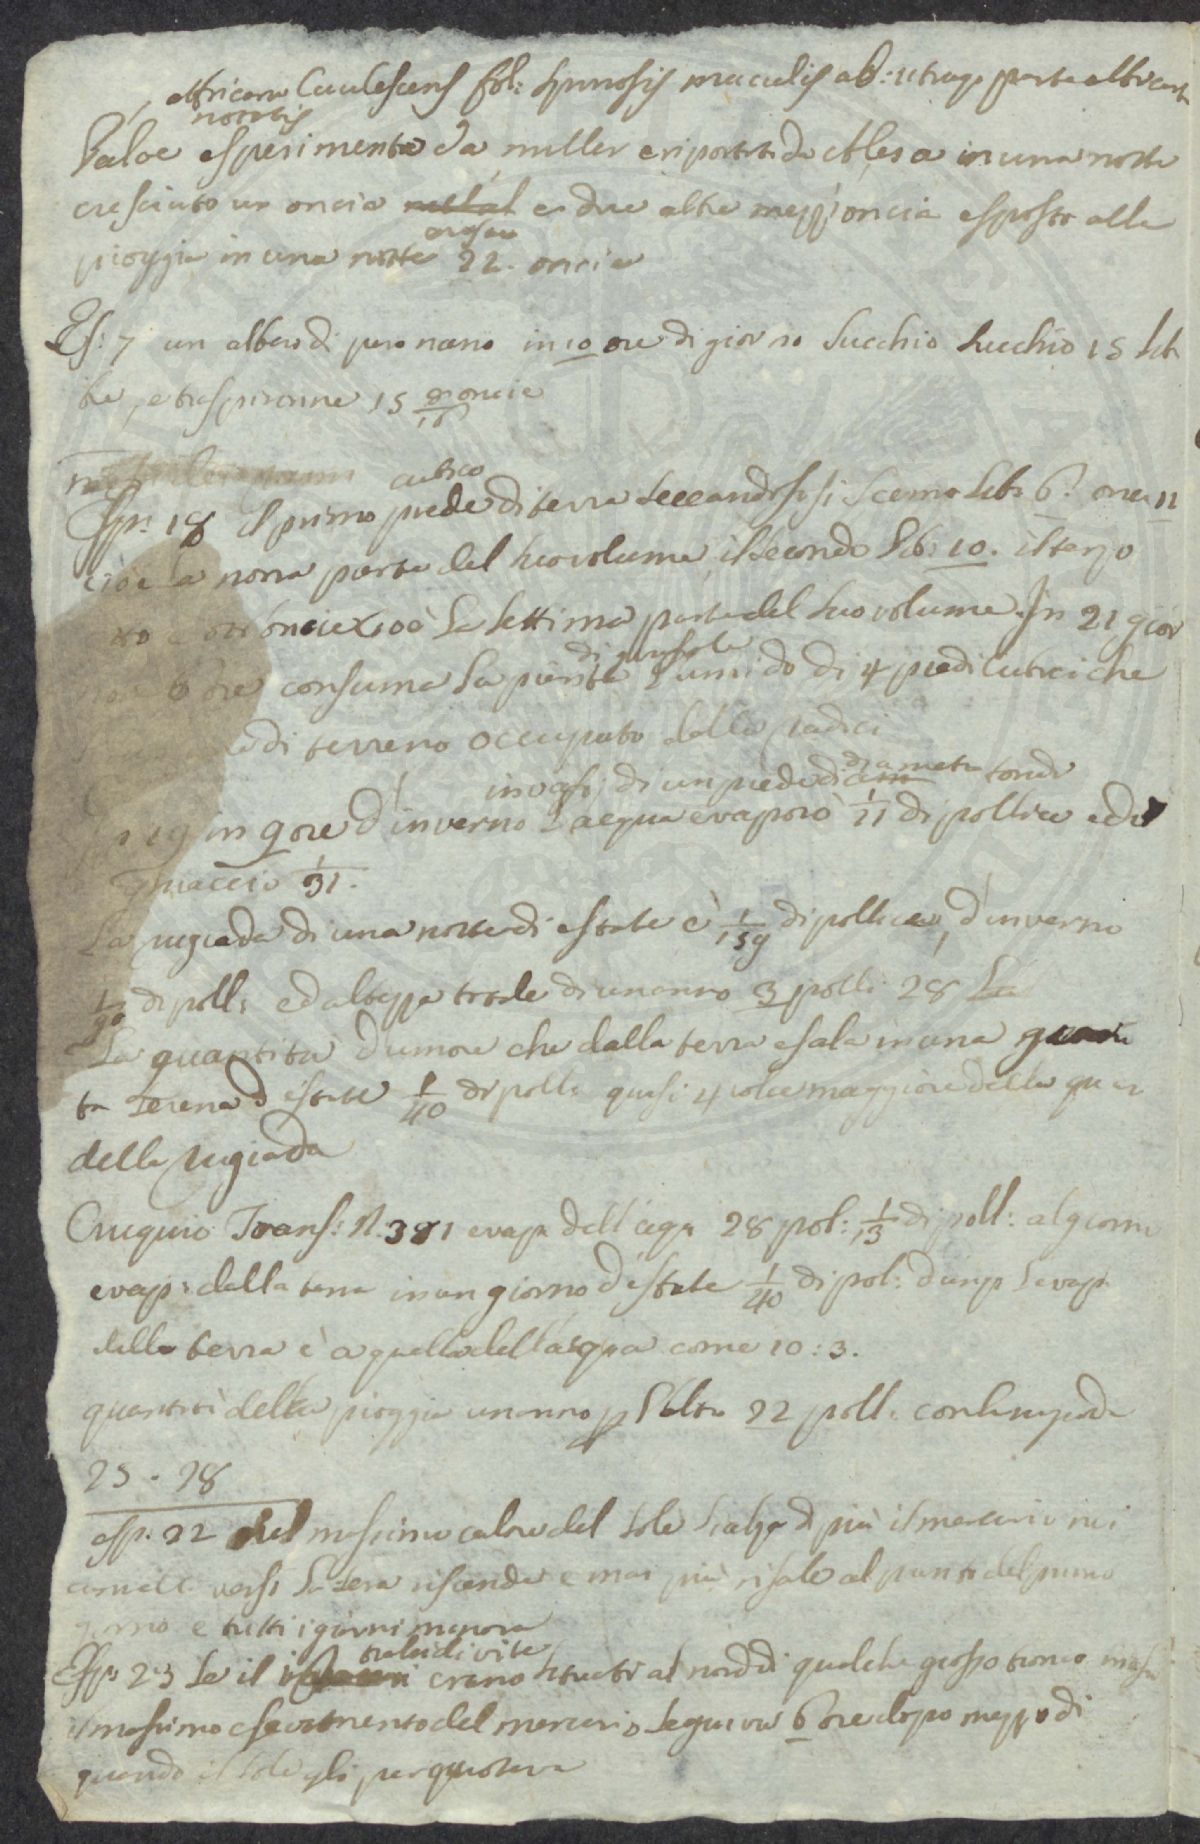 africana Caulescens fol: spinosis maculis ab: utraque parte albicanti
notatis
L'aloe esperimentata da miller e riportata da Ales a in una notte
cresciuto un oncia e due altre mezz'oncia esposto alla
pioggia in una notte 22. oncie
Es: 7 un albero di pero nano in 10 ore di giorno succhio succhio 15 lib
bre, e traspironne 15 8/10 oncie
cubico
Esp: 18 il primo piede di terra seccandosi si scemo lib: 6. once 11
cioè la nona parte del suo volume, il secondo lib: 10. il terzo
oncie cioè la settima parte del suo volume. In 21 gior
di girasole
ore consuma la pianta l'umido di 4 piedi cubici che
di terreno occupato dalle radici
in vasi di un piede di diametro tondi
19 in 9 ore d'inverno l'acqua evaporò 1/21 di pollice e di
ghiaccio 1/31.
La rugiada di una notte di estate è 1/159 di pollice, d'inverno
1/90 di poll: ed altezza totale di un anno 3 polli 28
La quantità d'umore che dalla terra esala in una giorna
ta serena d'estate 1/40 di poll: quasi 4 volte maggiore della
della rugiada
Cruquio Trans: N. 381 evap dell'acqu 28 pol: 1/13 di poll: al giorno
evap: della terra in un giorno d'estate 1/40 di pol: dunq l'evap
della terra è a quella dell'acqua come 10: 3.
quantità della pioggia un anno p l'altro 22 poll: con la rugiada
25 - 28
esp. 22 nel massimo calore del sole s'alza di più il mercurio nei
cannelli verso la sera riscende e mai più risale al punto del primo
giorno e tutti i giorni minora
tralci di vite
Esp: 23 Se il erano situati al nord di qualche grosso tronco
il massimo del mercurio seguiva 6 ore dopo mezzo di
quando il sole gli perquoteva